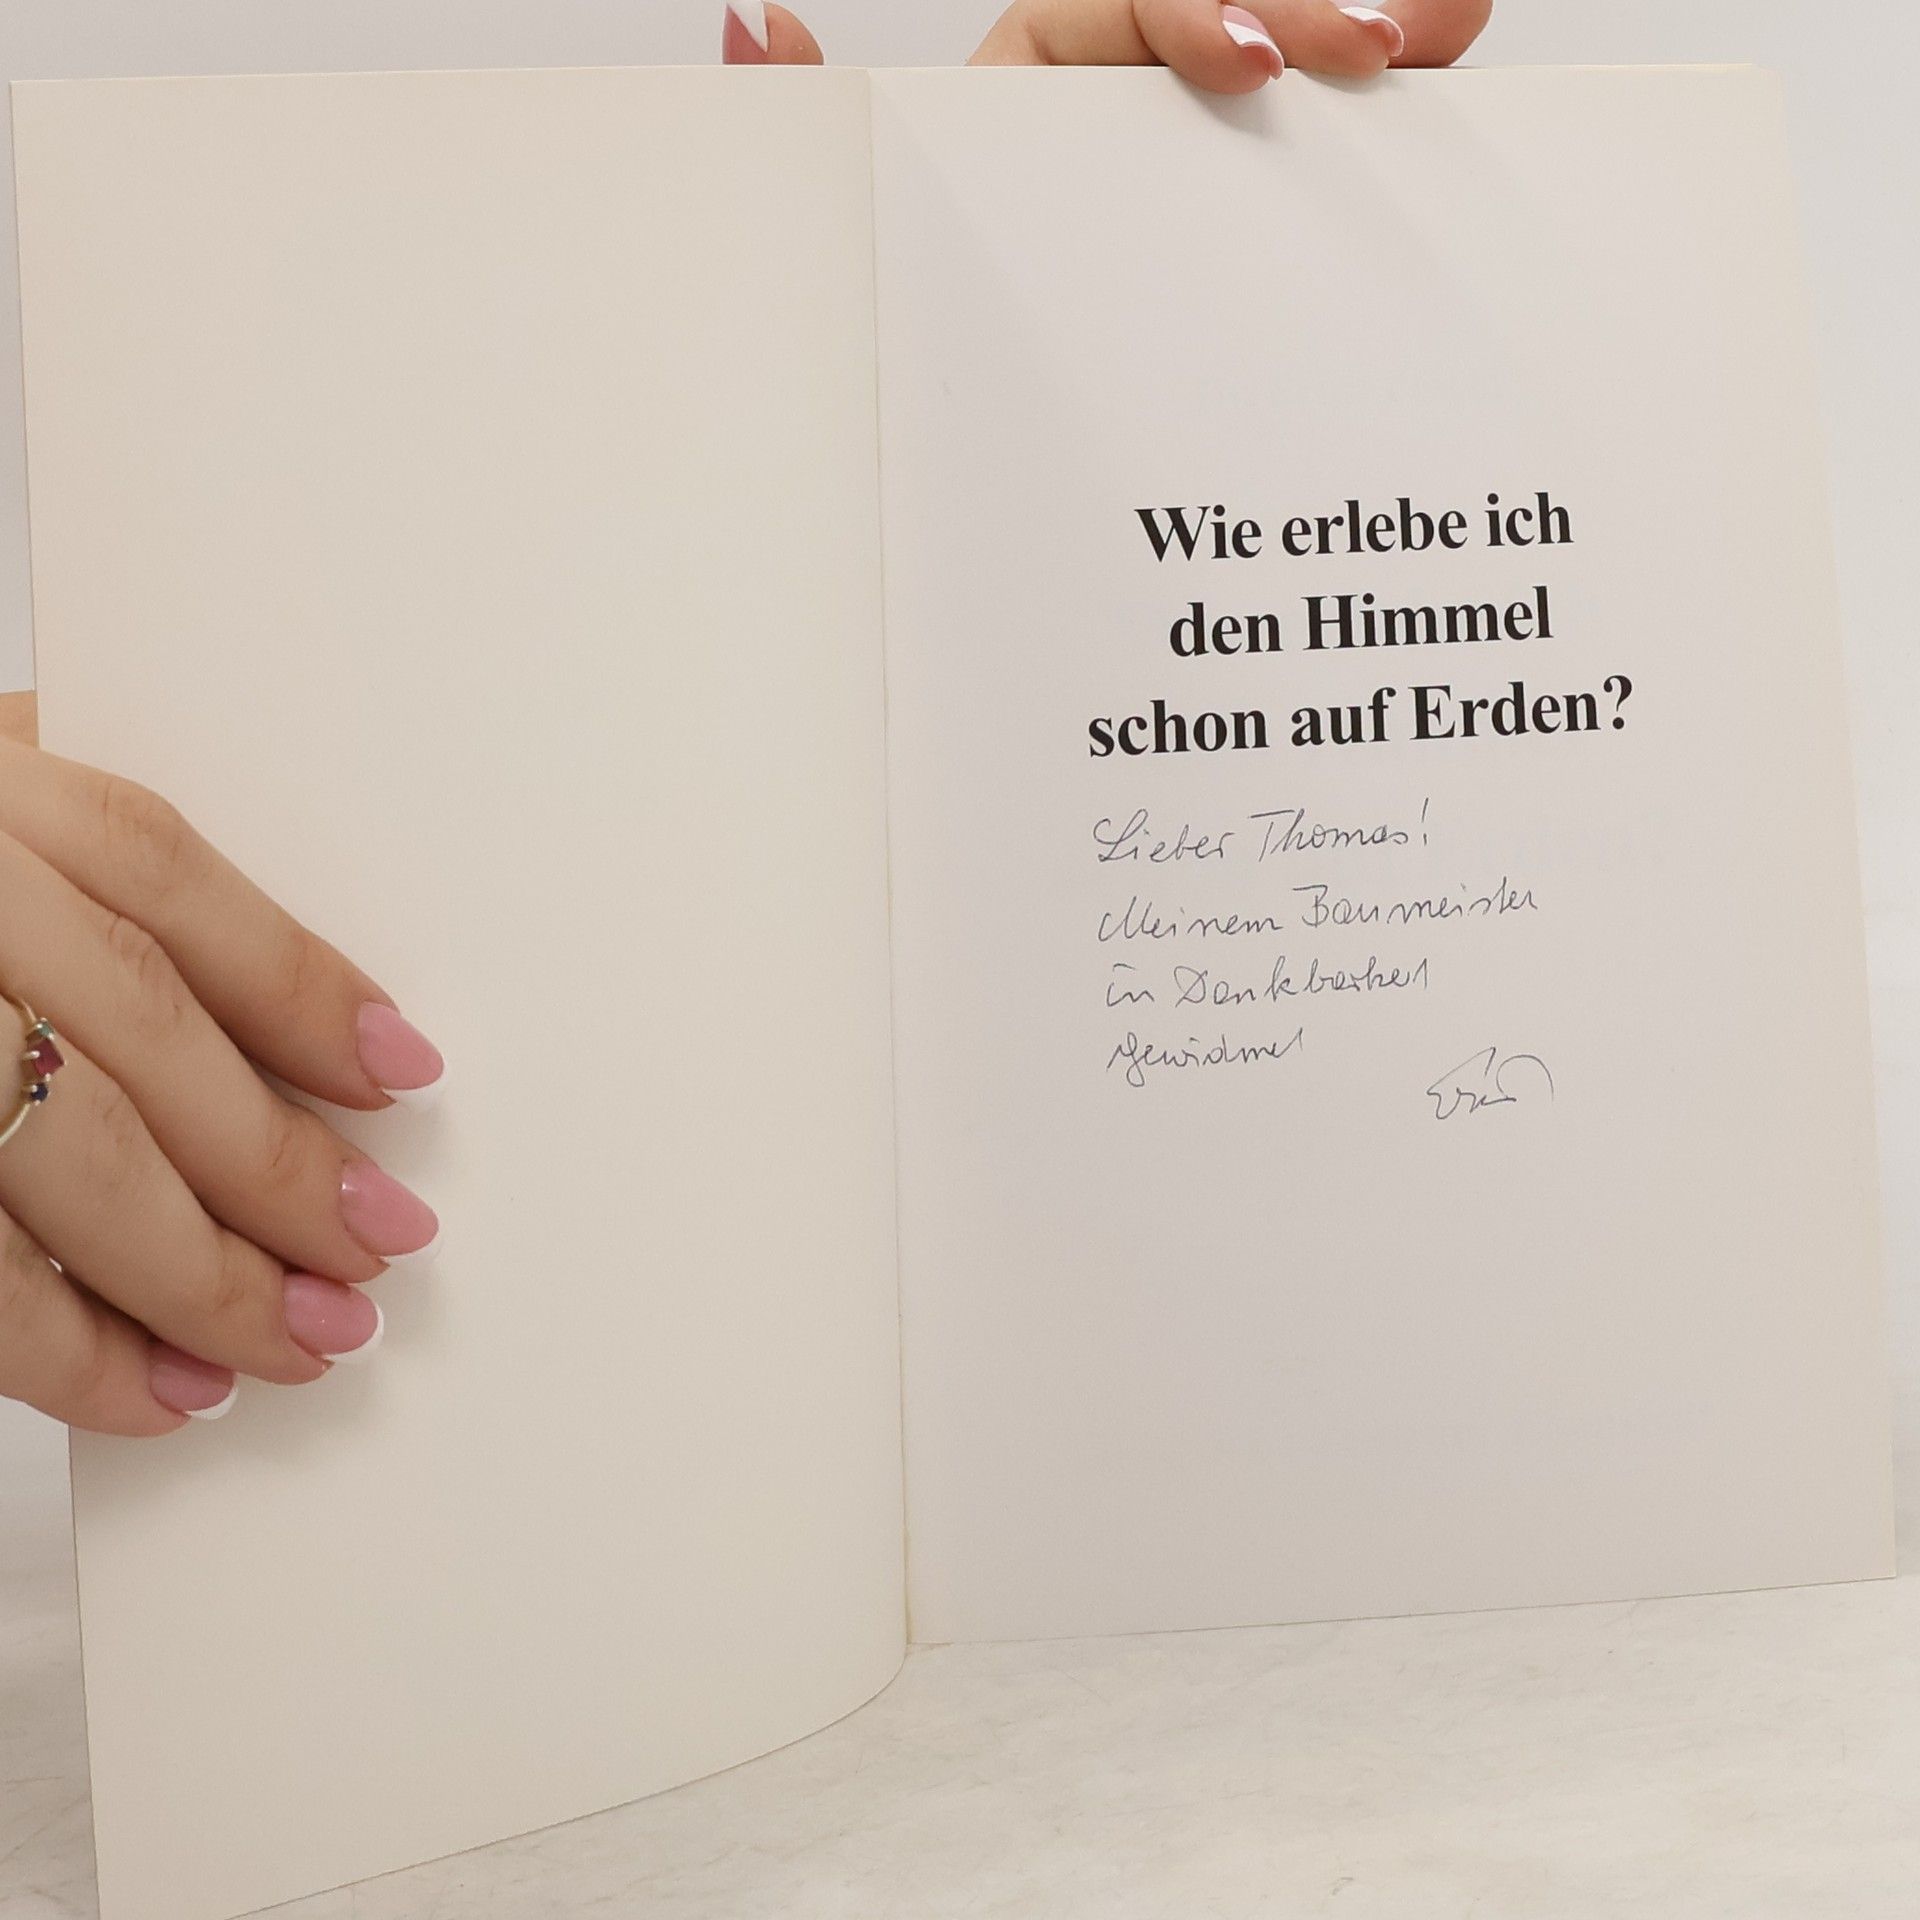 Wie erlebe ich
den Himmel
schon auf Erden?
Lieber Thomas!
Meinem Baumeister
in Dankbarkeit
gewidmet